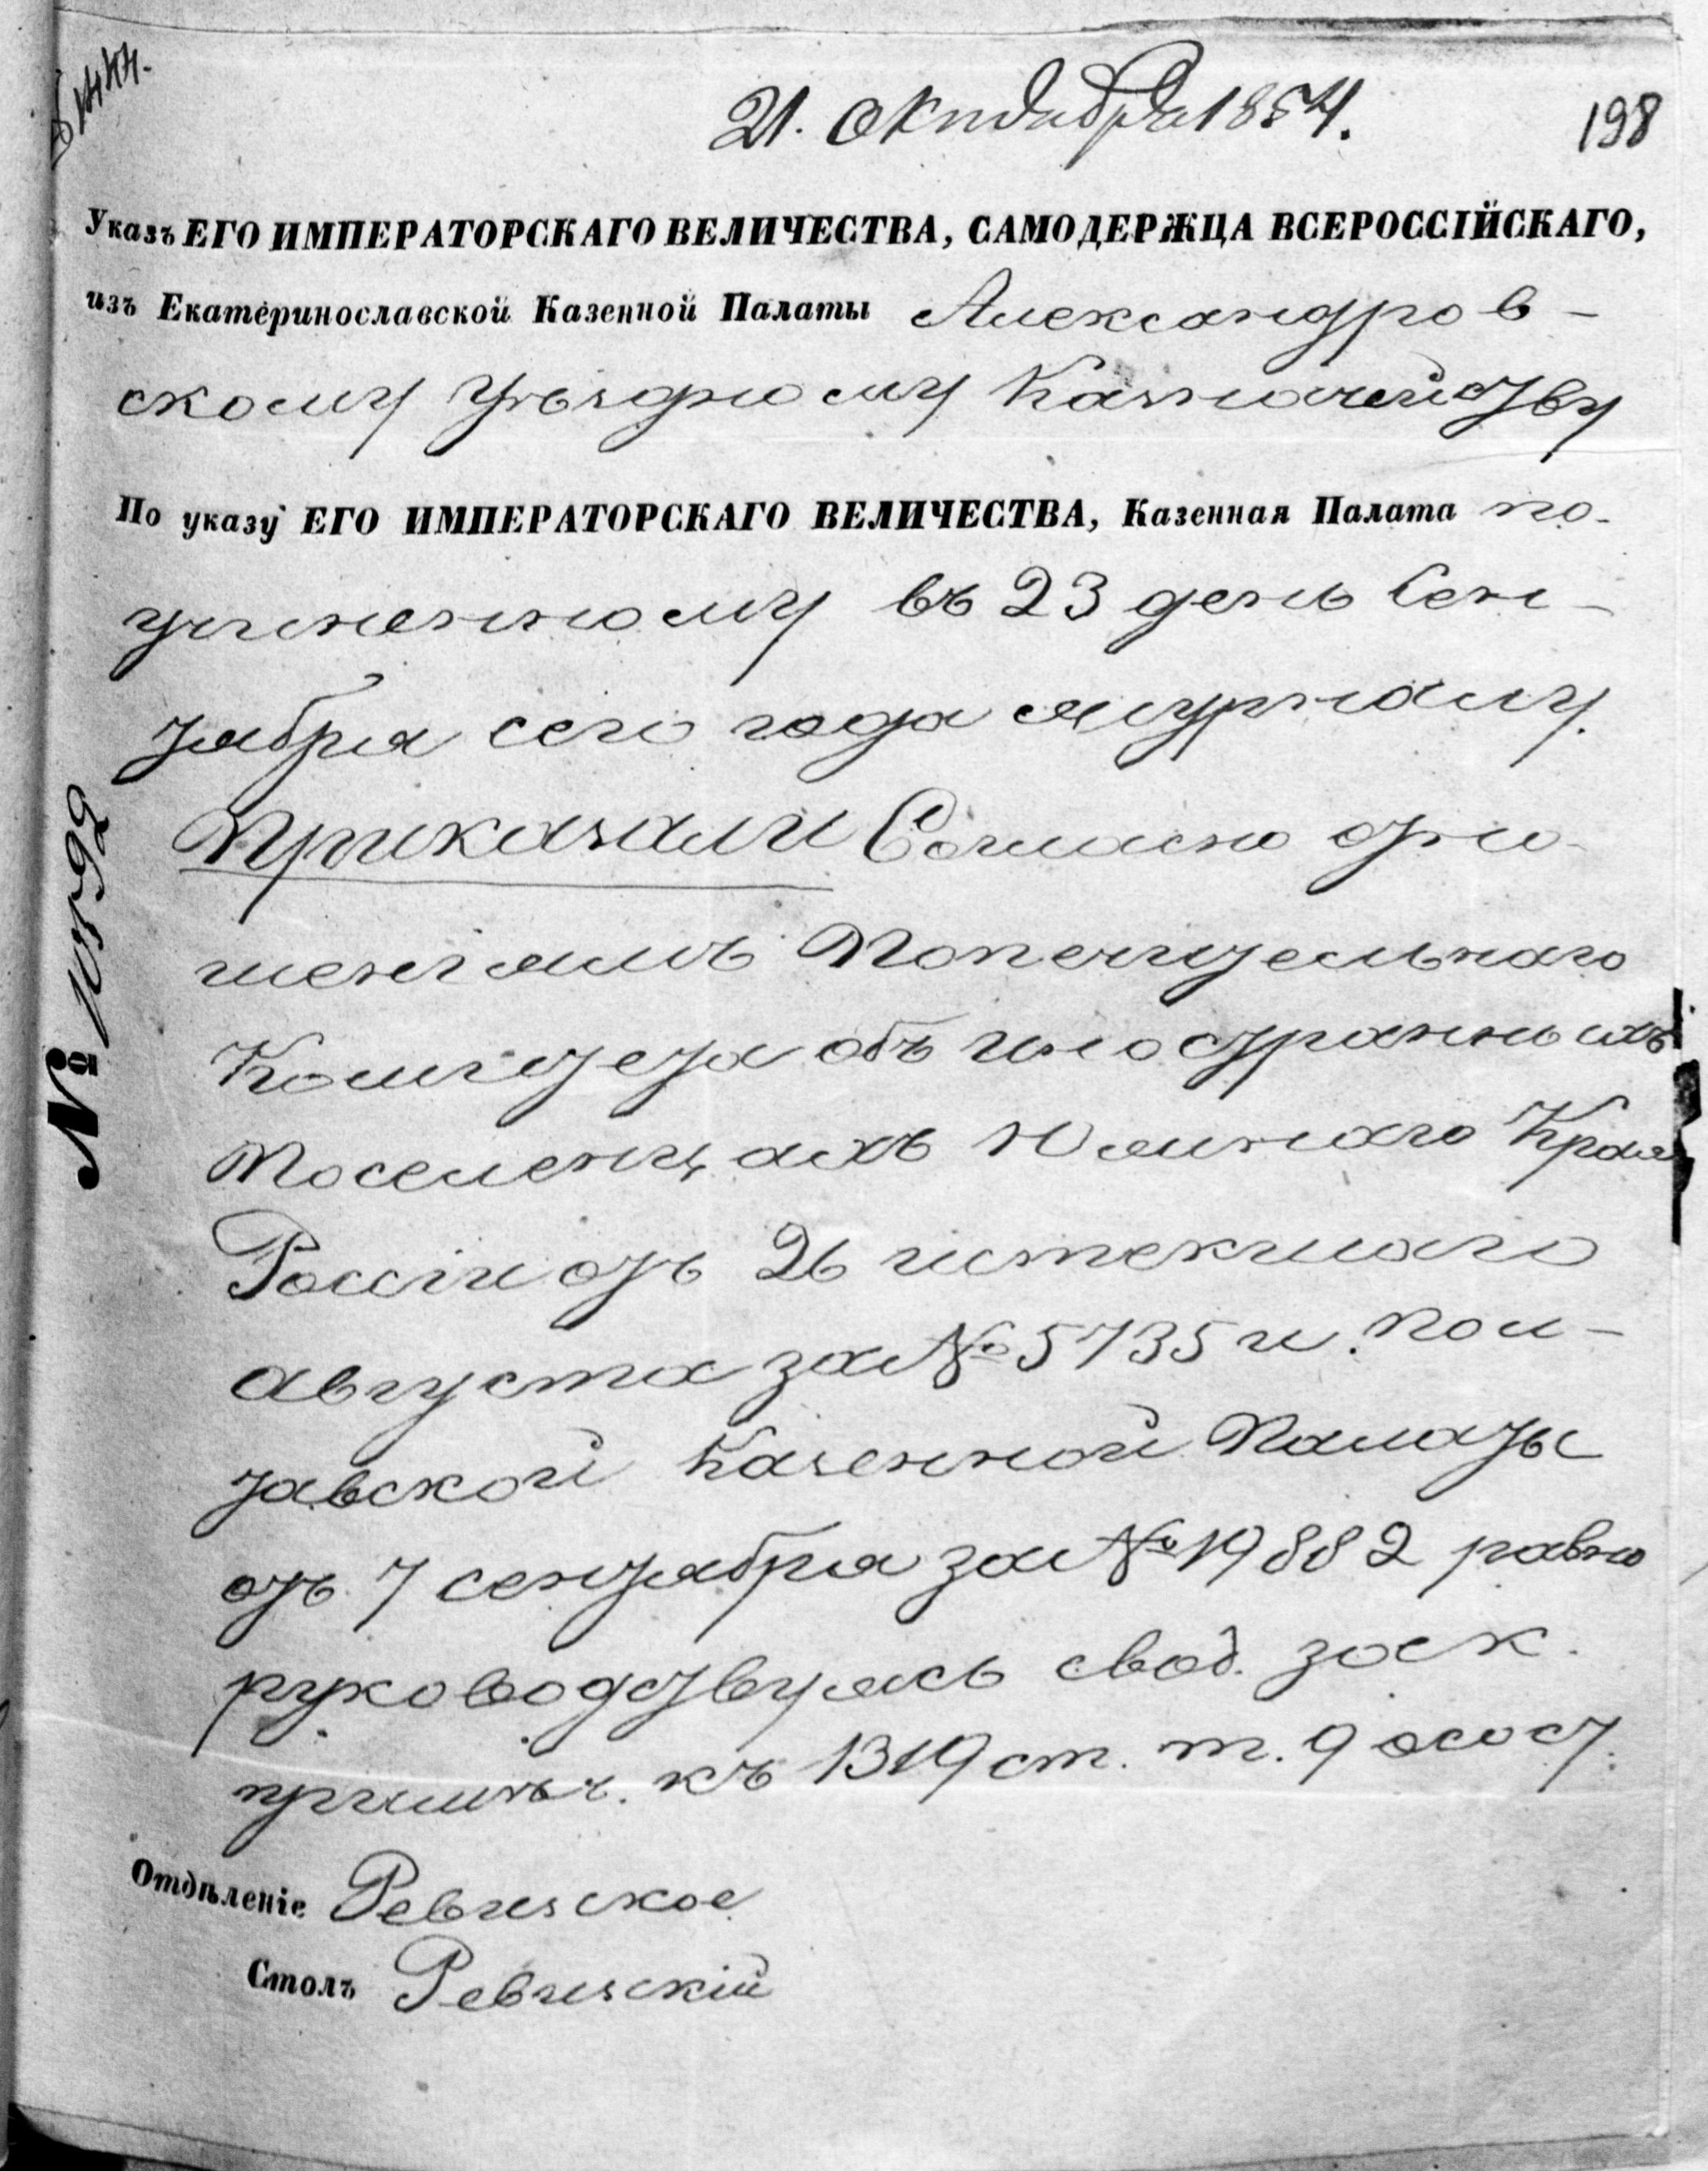 21. Октября 1854.
198
Указъ ЕГО ИМПЕРАТОРСКАГО ВЕЛИЧЕСТВА, САМОДЕРЖЦА ВСЕРОССІЙСКАГО,
изъ Екатеринославской Казенной Палаты Александров-
скому Уѣздному Казначейству
По указу ЕГО ИМПЕРАТОРСКАГО ВЕЛИЧЕСТВА, Казенная Палата по-
учиненному въ 23 день Сен-
тября сего года журналу.
Приказали Согласно отно-
шеніямъ Попечительнаго
Комитета объ иностранныхъ
Поселенцахъ Южнаго Края
Россіи отъ 26 истекшаго
августа за № 5735 и. Пол-
тавской Казенной Палаты
отъ 7 сентября за № 19882 равно
руководствуясь свод. зак.
примѣч. къ 1319 ст. т. 9 о сост.
№ 10592
Отдѣленіе Ревизское
Столъ Ревизскій